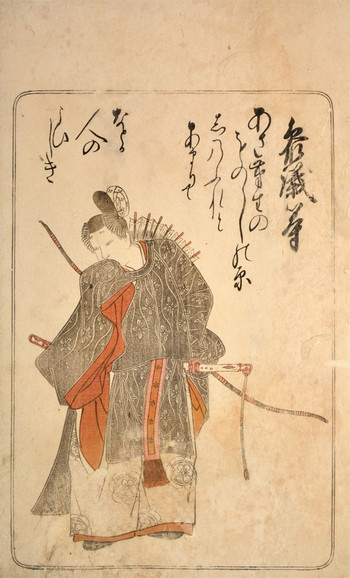 参議等
あさ茅生の
をのゝしの原
しのふれと
あまりて
なとか
人の
こひしき